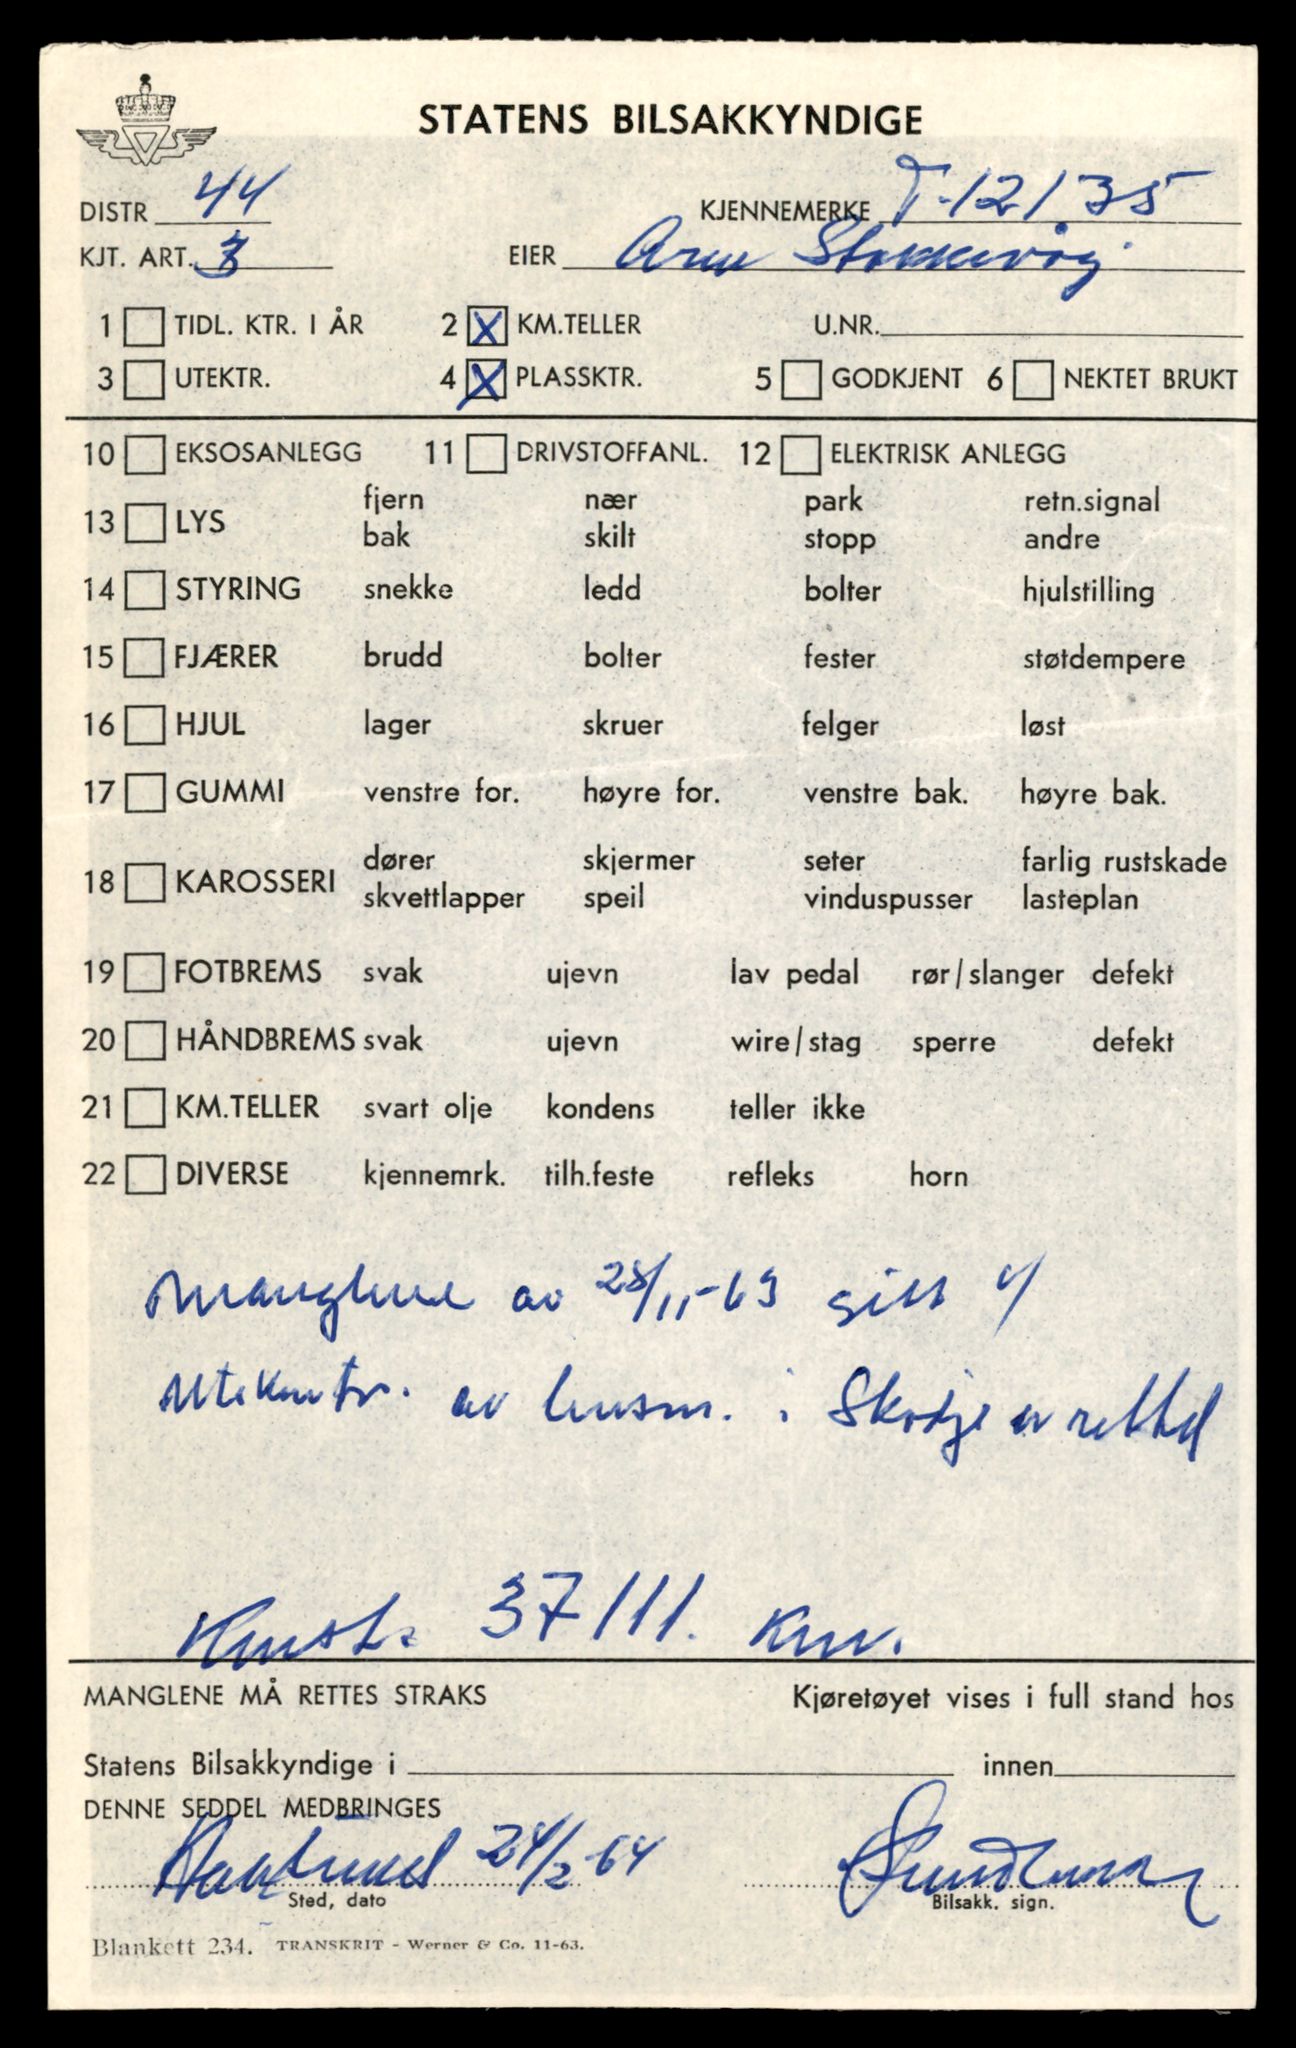 STATENS BILSAKKYNDIGE
DISTR 44 KJENNEMERKE T-12135
KJT. ART. EIER Arne Stokkevåg
1 TIDL. KTR. I ÅR 2 X KM.TELLER U.NR.
3 UTEKTR. 4 X PLASSKTR. 5 GODKJENT 6 NEKTET BRUKT
10 EKSOSANLEGG 11 DRIVSTOFFANL. 12 ELEKTRISK ANLEGG
fjern nær park retn.signal
13 LYS
bak skilt stopp andre
14 STYRING snekke ledd bolter hjulstilling
15 FJÆRER brudd bolter fester støtdempere
16 HJUL lager skruer felger løst
17 GUMMI venstre for. høyre for. venstre bak. høyre bak.
dører skjermer seter farlig rustskade
18 KAROSSERI
skvettlapper speil vinduspusser lasteplan
19 FOTBREMS svak ujevn lav pedal rør/slanger defekt
20 HÅNDBREMS svak ujevn wire/stag sperre defekt
21 KM.TELLER svart olje kondens teller ikke
22 DIVERSE kjennemrk. tilh.feste refleks horn
Manglene av 28/11-63 gitt v/
utekontr. av lensm. i Skodje er rettet
Kmst. 37111. km.
MANGLENE MÅ RETTES STRAKS Kjøretøyet vises i full stand hos
Statens Bilsakkyndige i innen
DENNE SEDDEL MEDBRINGES
24/2-64
Sted, dato Bilsakk. sign.
Blankett 234. TRANSKRIT - Werner & Co. 11-63.